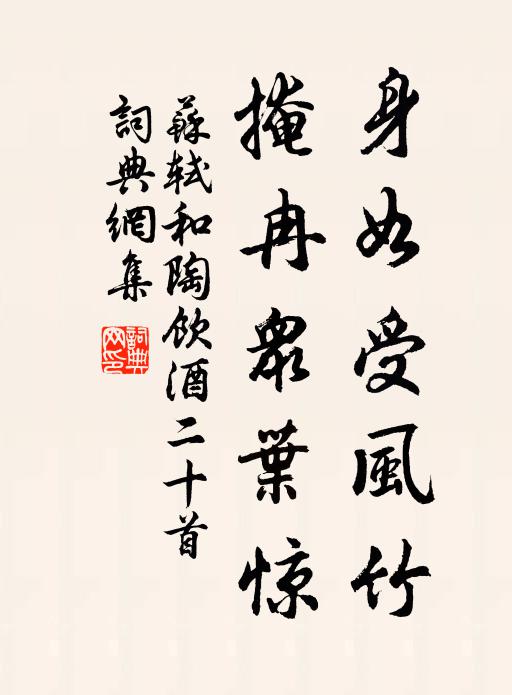 身如受風竹
掩冉眾葉惊
蘇軾和陶飲酒二十首
詞典網集
詞典網印